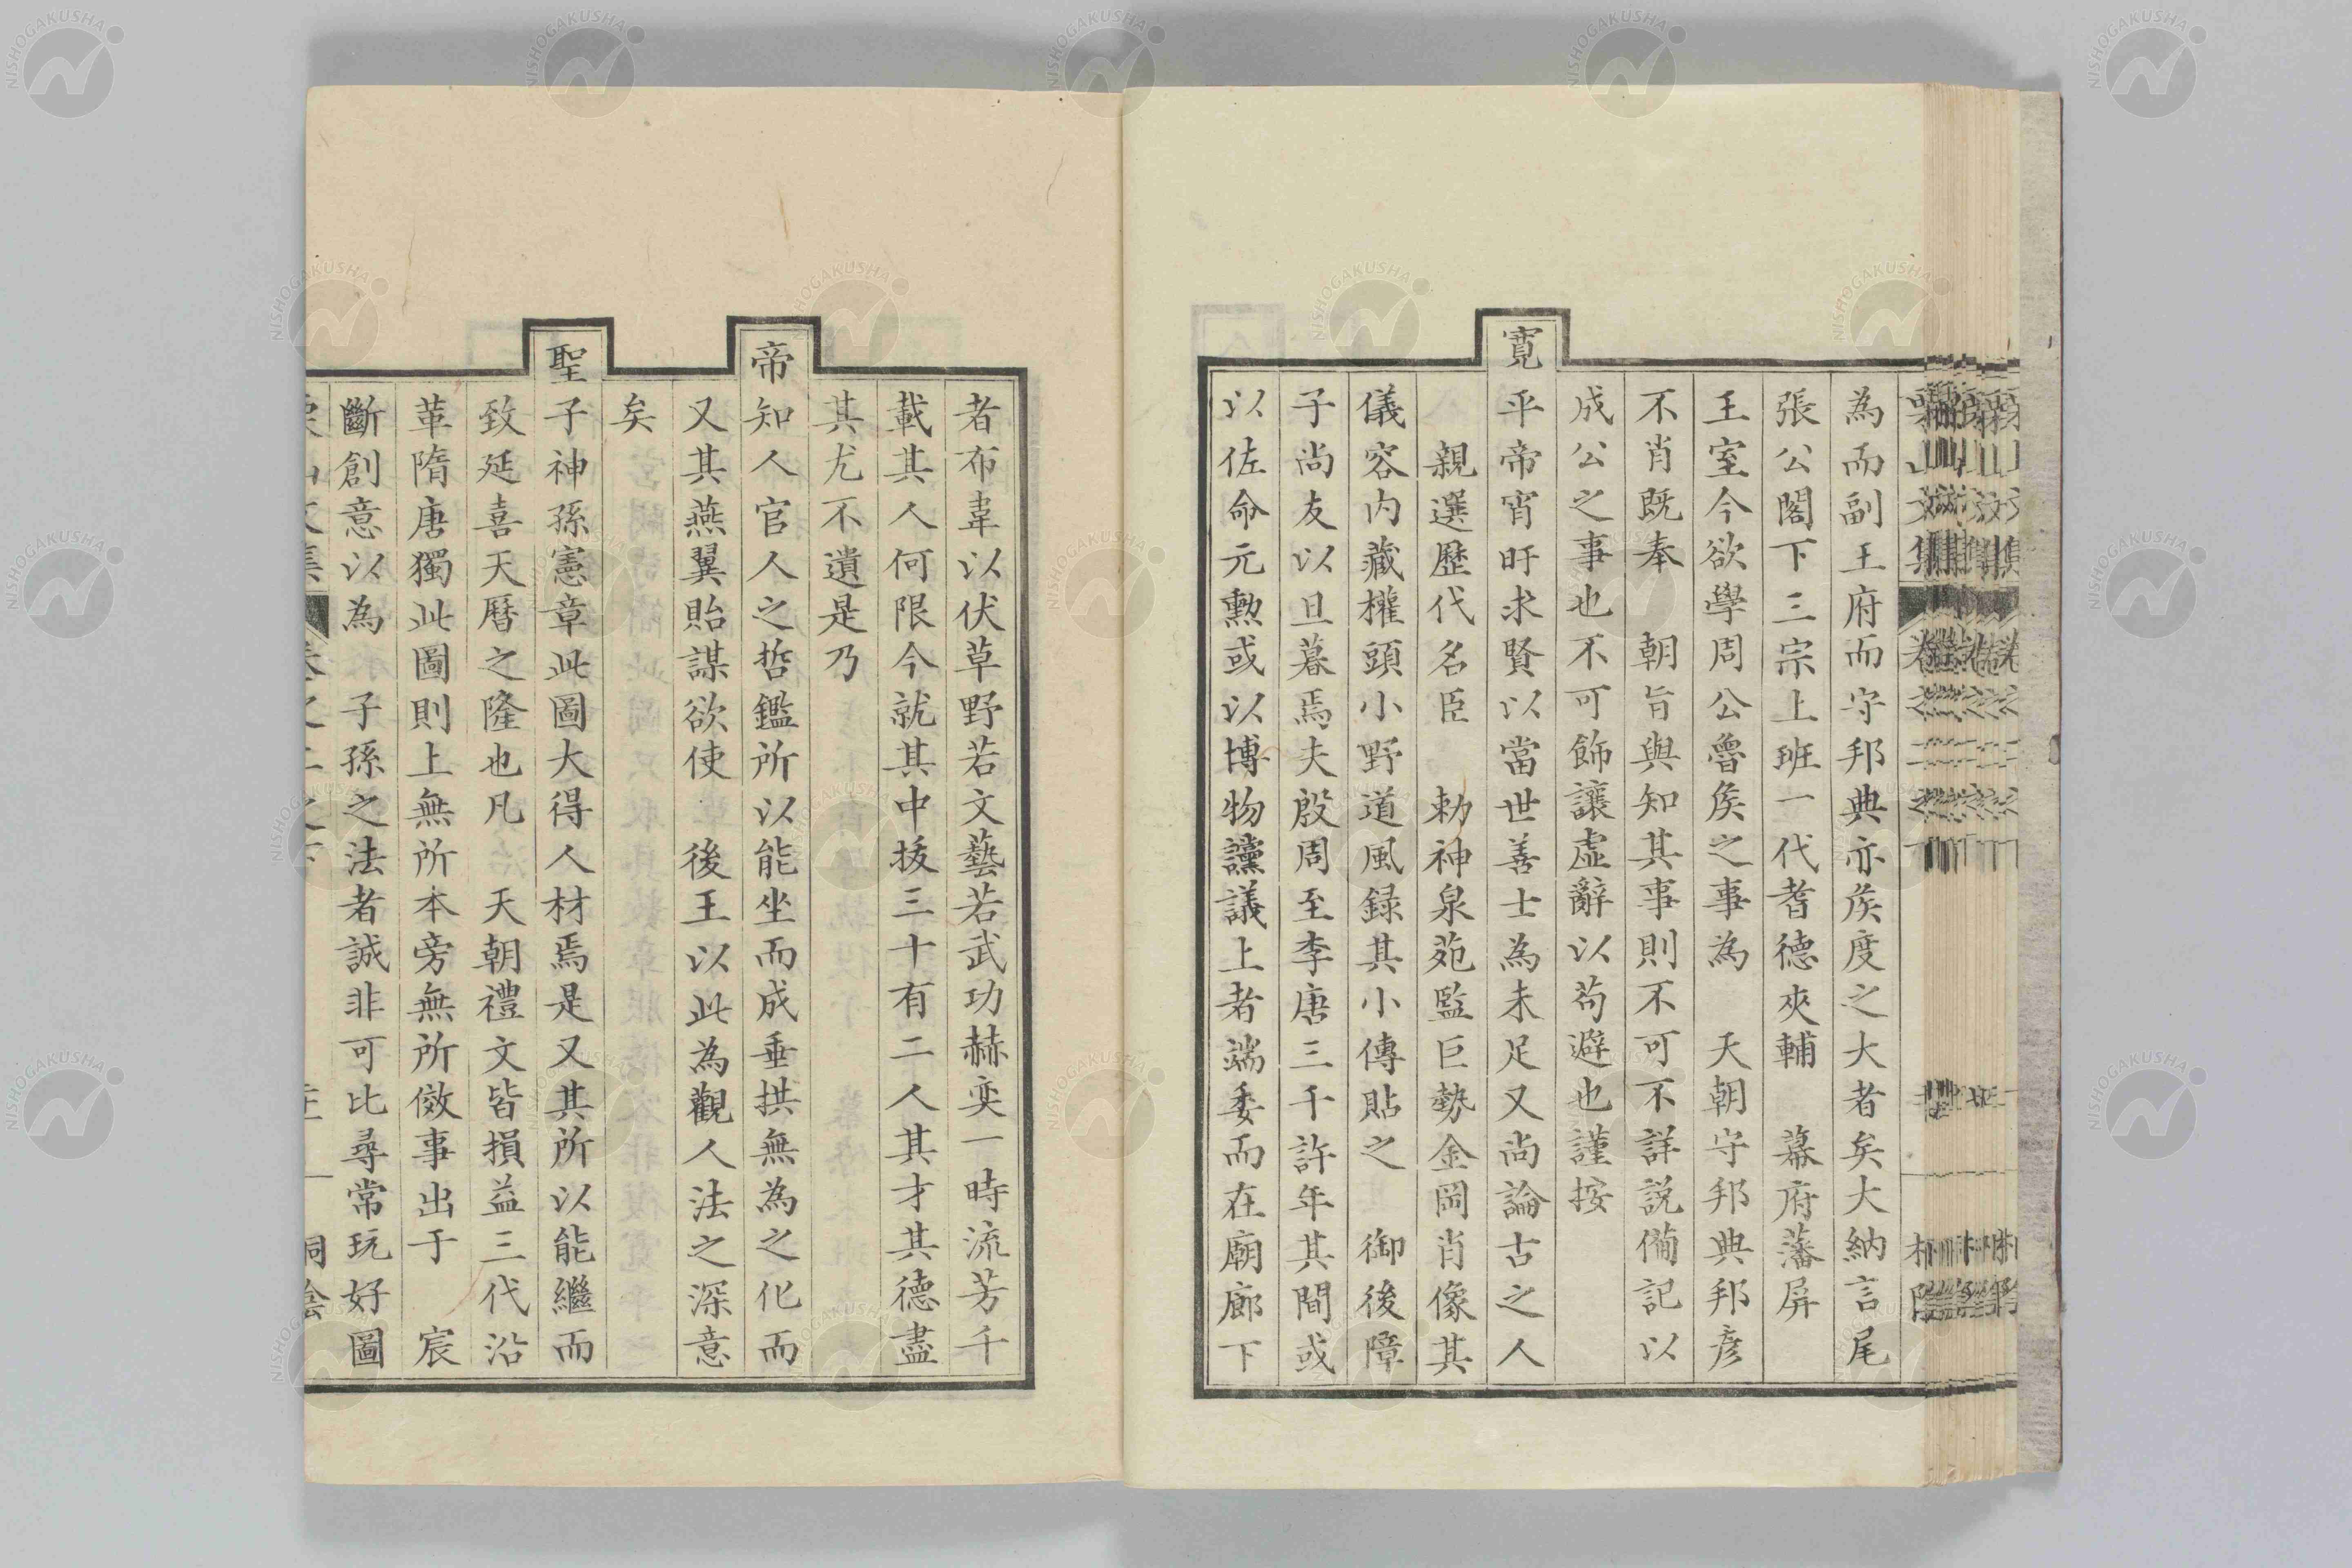 為而副王府而守邦典亦矦度之大者矣大納言尾
張公閣下三宗上班一代耆德夾輔　幕府藩屏
王室今欲學周公魯矦之事為　天朝守邦典邦彥
不肖既奉　朝旨與知其事則不可不詳説備記以
成公之事也不可飾讓虛辭以苟避也謹按
寛平帝宵旰求賢以當世善士為未足又尚論古之人
親選歷代名臣　勅神泉苑監巨勢金岡肖像其
儀容内藏權頭小野道風録其小傳貼之　御後障
子尚友以旦暮焉夫殷周至李唐三千許年其間或
以佐命元勲或以博物讜議上者端委而在廟廊下
者布韋以伏草野若文藝若武功赫奕一時流芳千
載其人何限今就其中拔三十有二人其才其德盡
其尤不遺是乃
帝知人官人之哲鑑所以能坐而成垂拱無為之化而
又其燕翼貽謀欲使　後王以此為觀人法之深意
矣
聖子神孫憲章此圖大得人材焉是又其所以能繼而
致延喜天曆之隆也凡　天朝禮文皆損益三代沿
革隋唐獨此圖則上無所本旁無所倣事出于　宸
斷創意以為　子孫之法者誠非可比尋常玩好圖
NISHOGAKUSHA